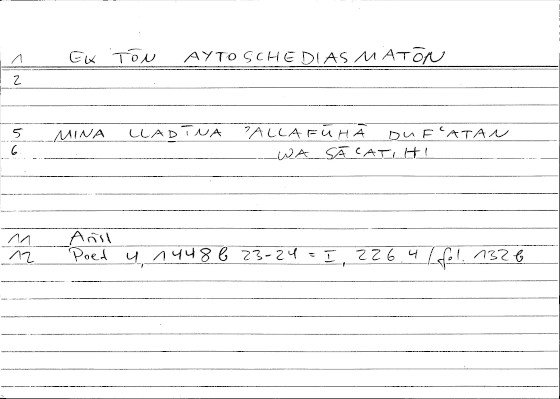 1 EK TŌN AYTOSCHEDIASMATŌN
2
5 MINA LLADĪNA ʾALLAFŪHĀ DUFʿATAN
6 WA SĀʿATIHI
11 Arist
12 Poet 4, 1448b 23-24 = I, 226 4 / fol. 132b